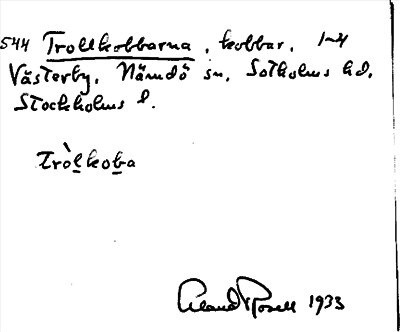 544 Trollkobbarna, kobbar, 1-4
Västerby, Nämdö sn, Sotholms hd,
Stockholms l.
tròlkoba
Rosell 1933